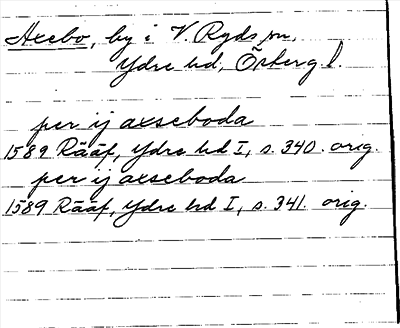 Axebo, by i V. Ryds sn,
Ydre hd, Östergl.
per ij axseboda
1589 Rääf, Ydre hd I, s. 340. orig.
per ij axseboda
1589 Rääf, Ydre hd I, s. 341. orig.